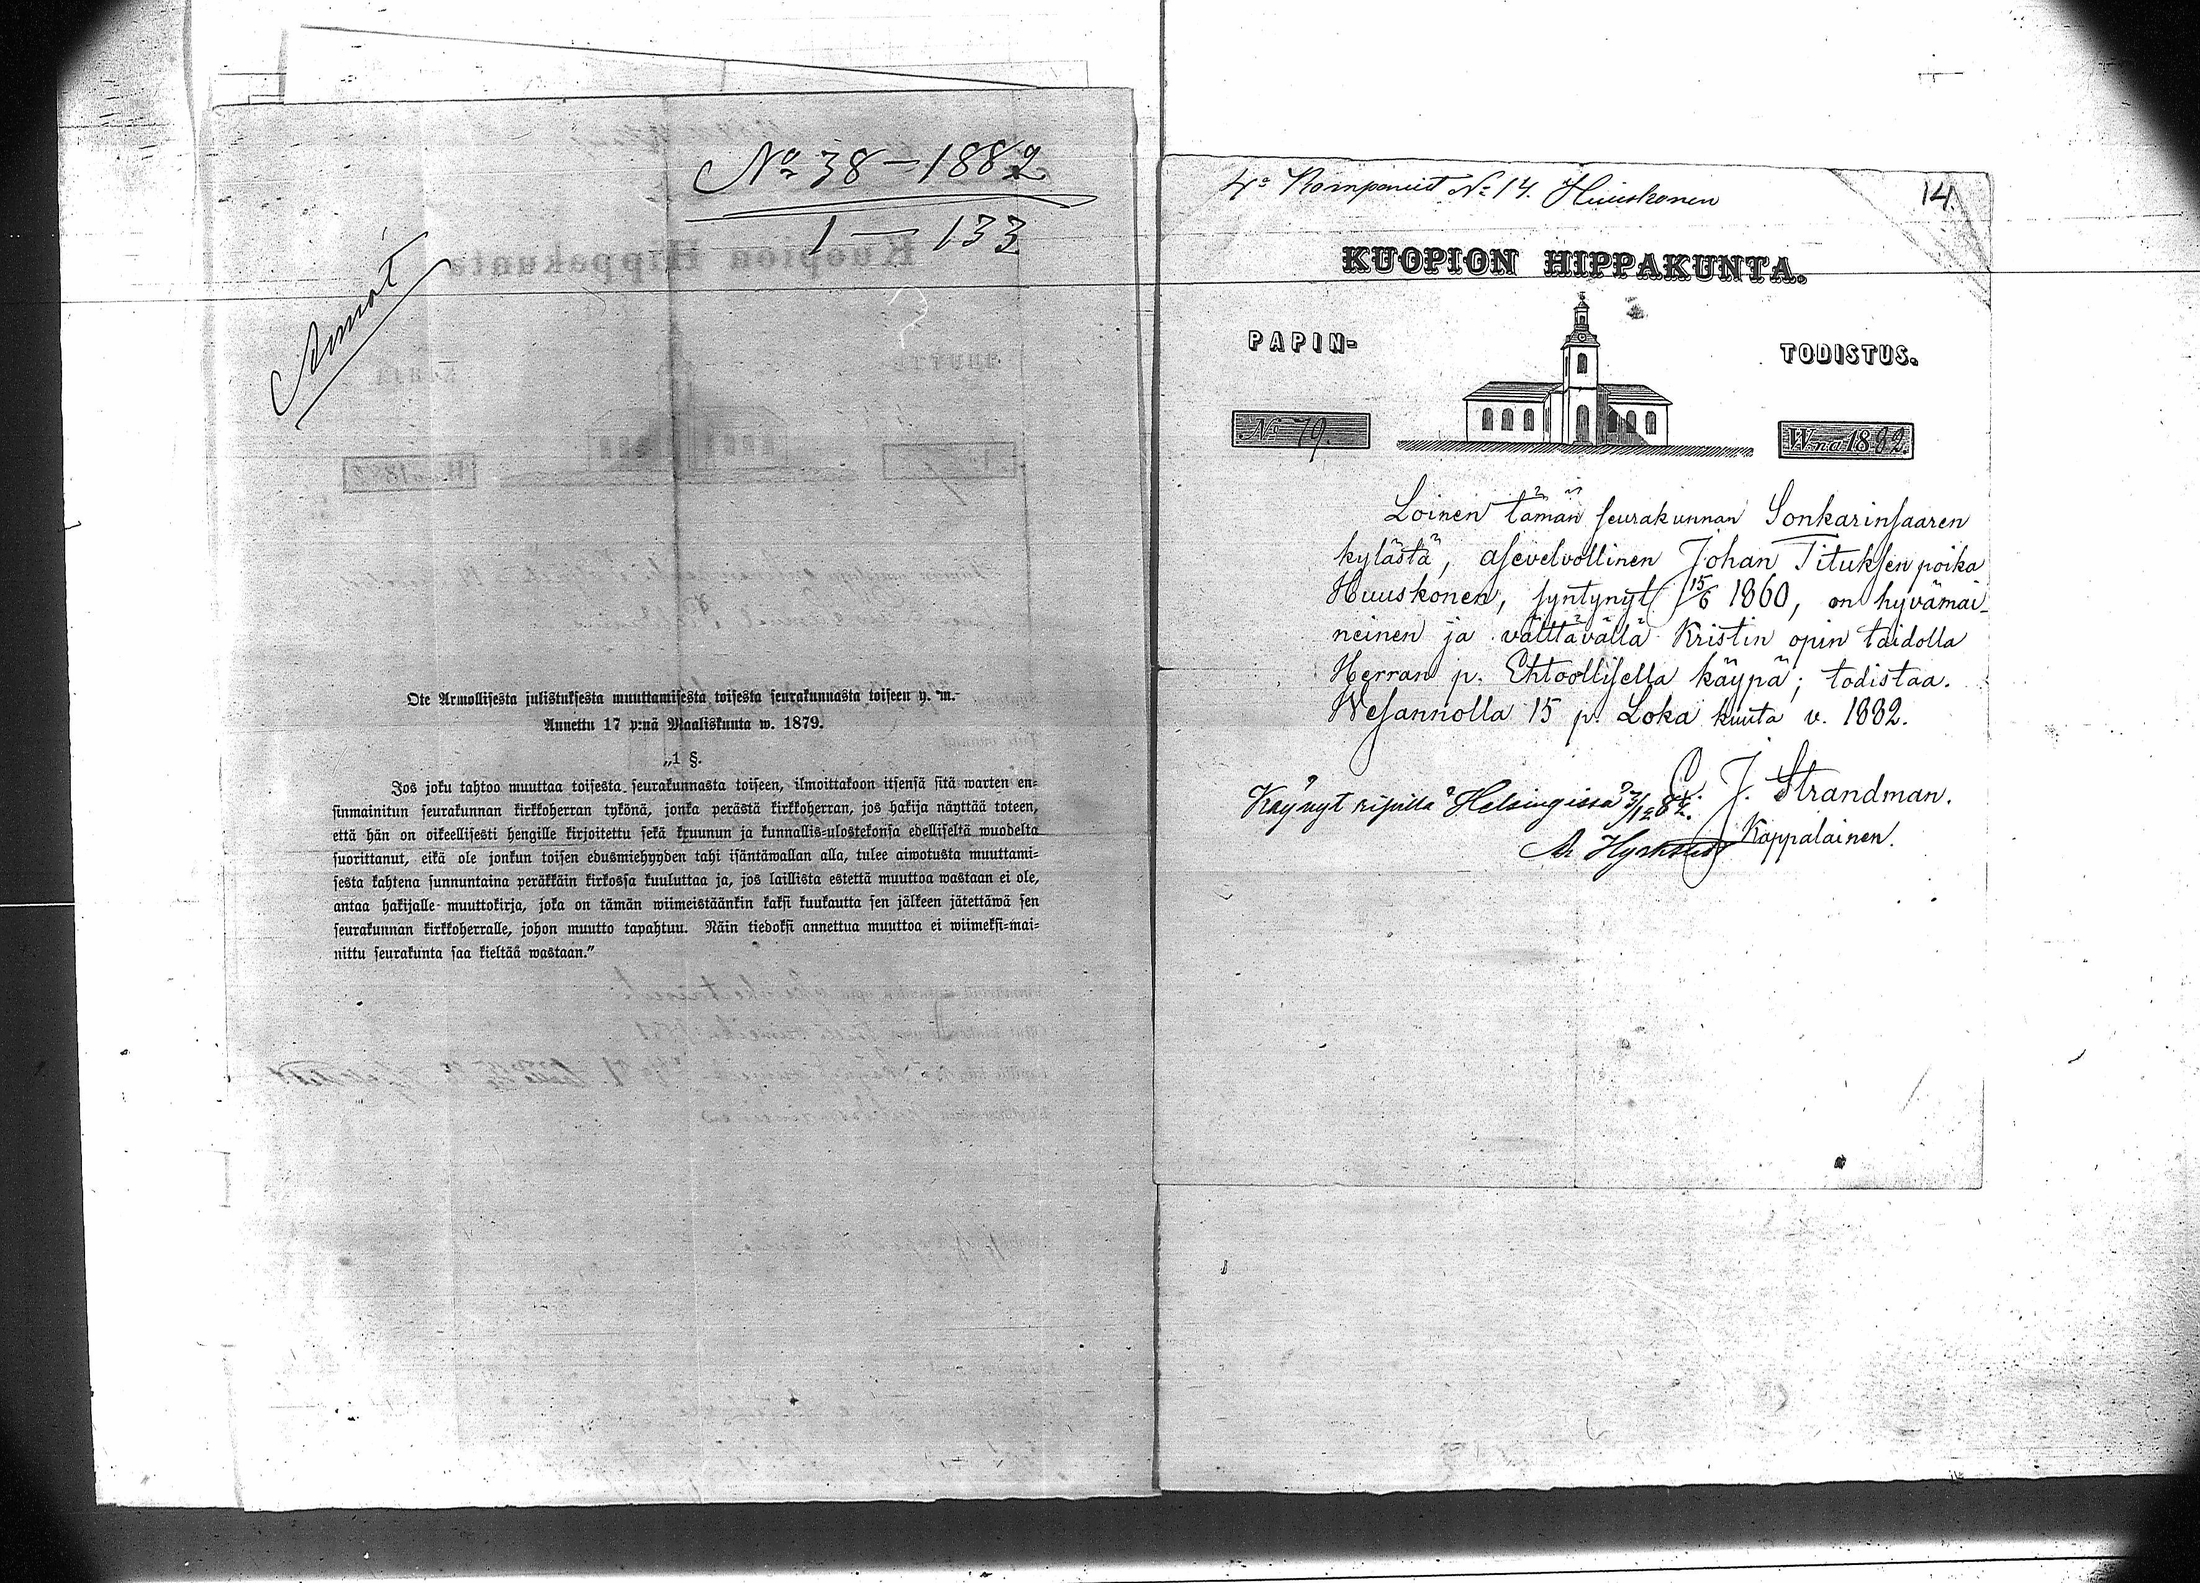 No 38 – 1882
1 — 133
Ote Armollisesta julistuksesta muuttamisesta toisesta seurakunnasta toiseen y. m.
Annettu 17 p:nä Maaliskuuta w. 1879.
„1 §.
Jos joku tahtoo muuttaa toisesta seurakunnasta toiseen, ilmoittakoon itsensä sitä warten en=
sinmainitun seurakunnan kirkkoherran tykönä, jonka perästä kirkkoherran, jos hakija näyttää toteen,
että hän on oikeellisesti hengille kirjoitettu sekä kruunun ja kunnallis=ulostekonsa edelliseltä wuodelta
suorittanut, eikä ole jonkun toisen edusmiehyyden tahi isäntäwallan alla, tulee aiwotusta muuttami=
sesta kahtena sunnuntaina peräkkäin kirkossa kuuluttaa ja, jos laillista estettä muuttoa wastaan ei ole,
antaa hakijalle muuttokirja, joka on tämän wiimeistäänkin kaksi kuukautta sen jälkeen jätettäwä sen
seurakunnan kirkkoherralle, johon muutto tapahtuu. Näin tiedoksi annettua muuttoa ei wiimeksi=mai=
nittu seurakunta saa kieltää wastaan."
4o Kompaniet No 14. Huuskonen
14.
KUOPION HIPPAKUNTA.
PAPIN-
TODISTUS.
No 79.
W:na 1882.
Loinen tämän seurakunnan Sonkarinsaaren
kylästä, asevelvollinen Johan Tituksen poika
Huuskonen, syntynyt 15/6 1860, on hyvämai-
neinen ja välttävällä Kristin opin taidolla
Herran p. Ehtoollisella käypä; todistaa.
Wesannolla 15 p. Loka kuuta v. 1882.
J. Strandman.
Kappalainen.
Käynyt ripillä Helsingissä